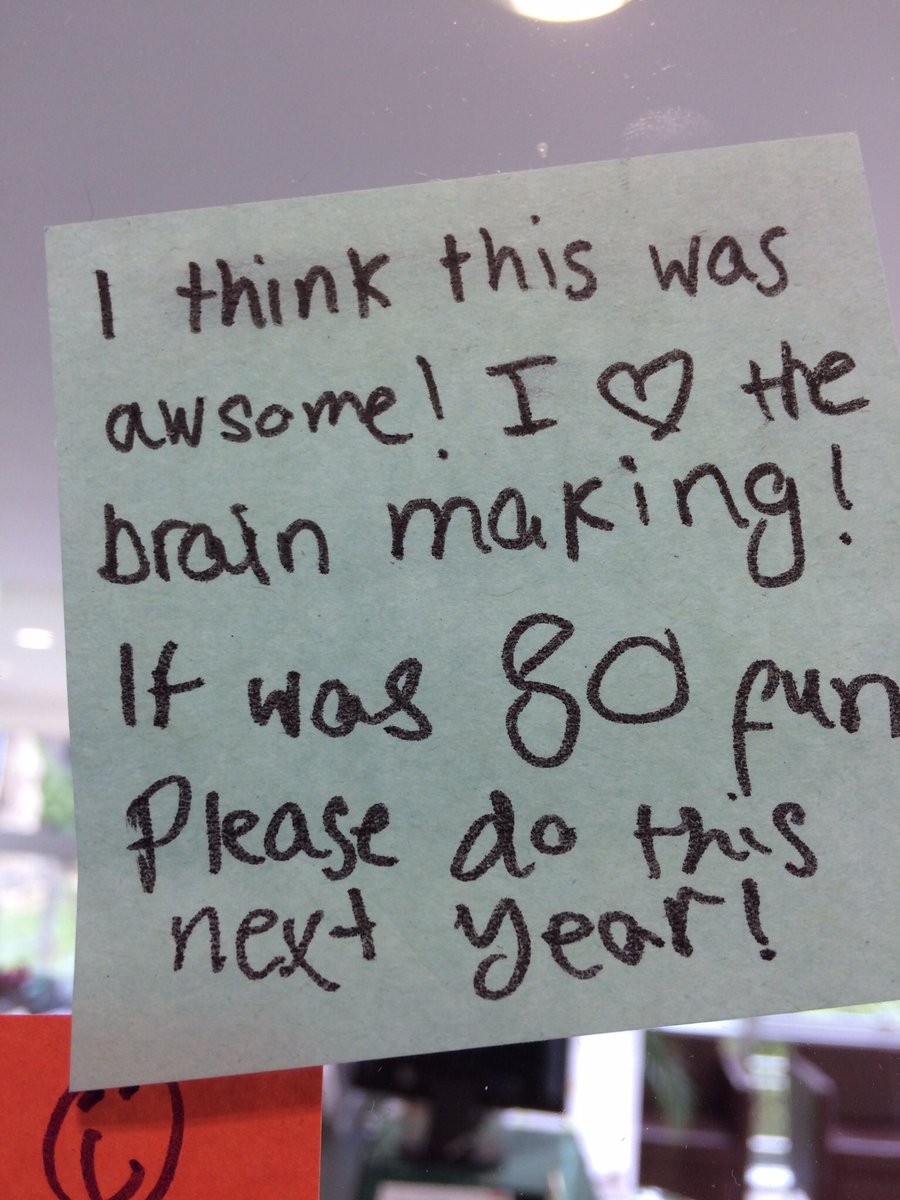 I think this was
awsome! I ♡ the
brain making!
It was 80 fun
Please do this
next year!